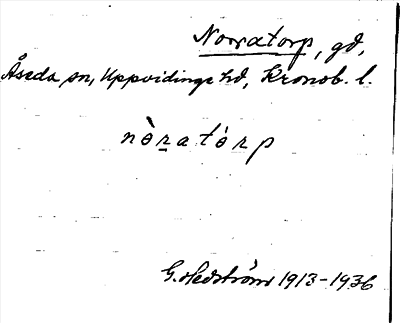 Norratorp, gd,
Åseda sn, Uppvidinge hd, Kronob. l.
nòratòrp
G. Hedström 1913-1936